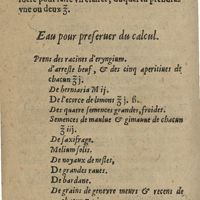 vne ou deux ℥.
Eau pour preseruer du calcul.
Prens des racines d'eryngium.
d'areste beuf, & des cinq aperitiues de
chacun ℥ j.
De herniaria M ij.
De l'ecorce de limons ℥ j. ß.
Des quatre semences grandes, froides.
Semences de maulue & gimauue de chacun
℥ iij.
De saxifrage.
Melium solis.
De noyaux de nesles,
De grandes raues.
De bardane,
De grains de geneure meurs & recens de